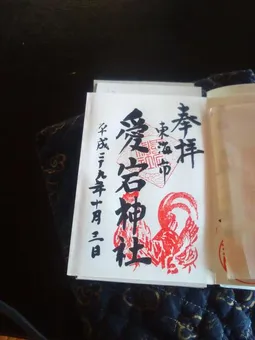 奉拝
東海市
愛宕神社
平成二十九年十月三日